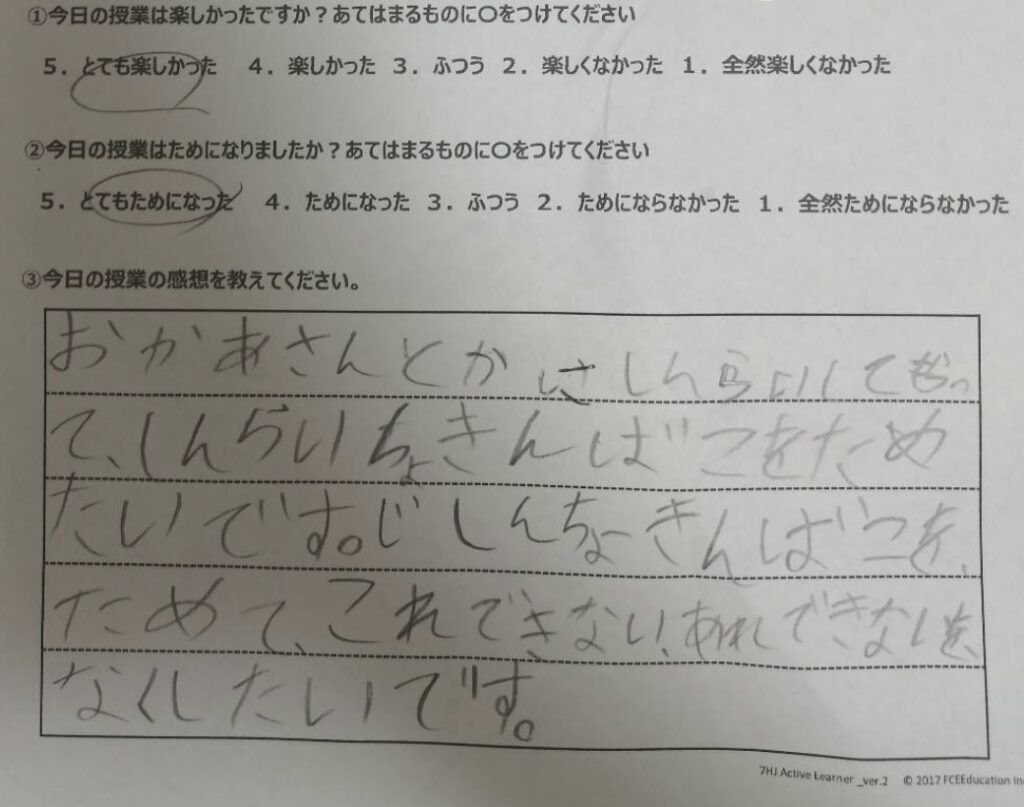 ①今日の授業は楽しかったですか？あてはまるものに〇をつけてください
5．とても楽しかった　4．楽しかった　3．ふつう　2．楽しくなかった　1．全然楽しくなかった
②今日の授業はためになりましたか？あてはまるものに〇をつけてください
5．とてもためになった　4．ためになった　3．ふつう　2．ためにならなかった　1．全然ためにならなかった
③今日の授業の感想を教えてください。
おかあさんとか しんらいしてもらっ
て、しんらいちょきんばこをため
たいです。じしんちょーきんばこを、
ためて、これできない、あれできないを、
なくしたいです。
7HJ Active Learner _ver.2　© 2017 FCEEducation In